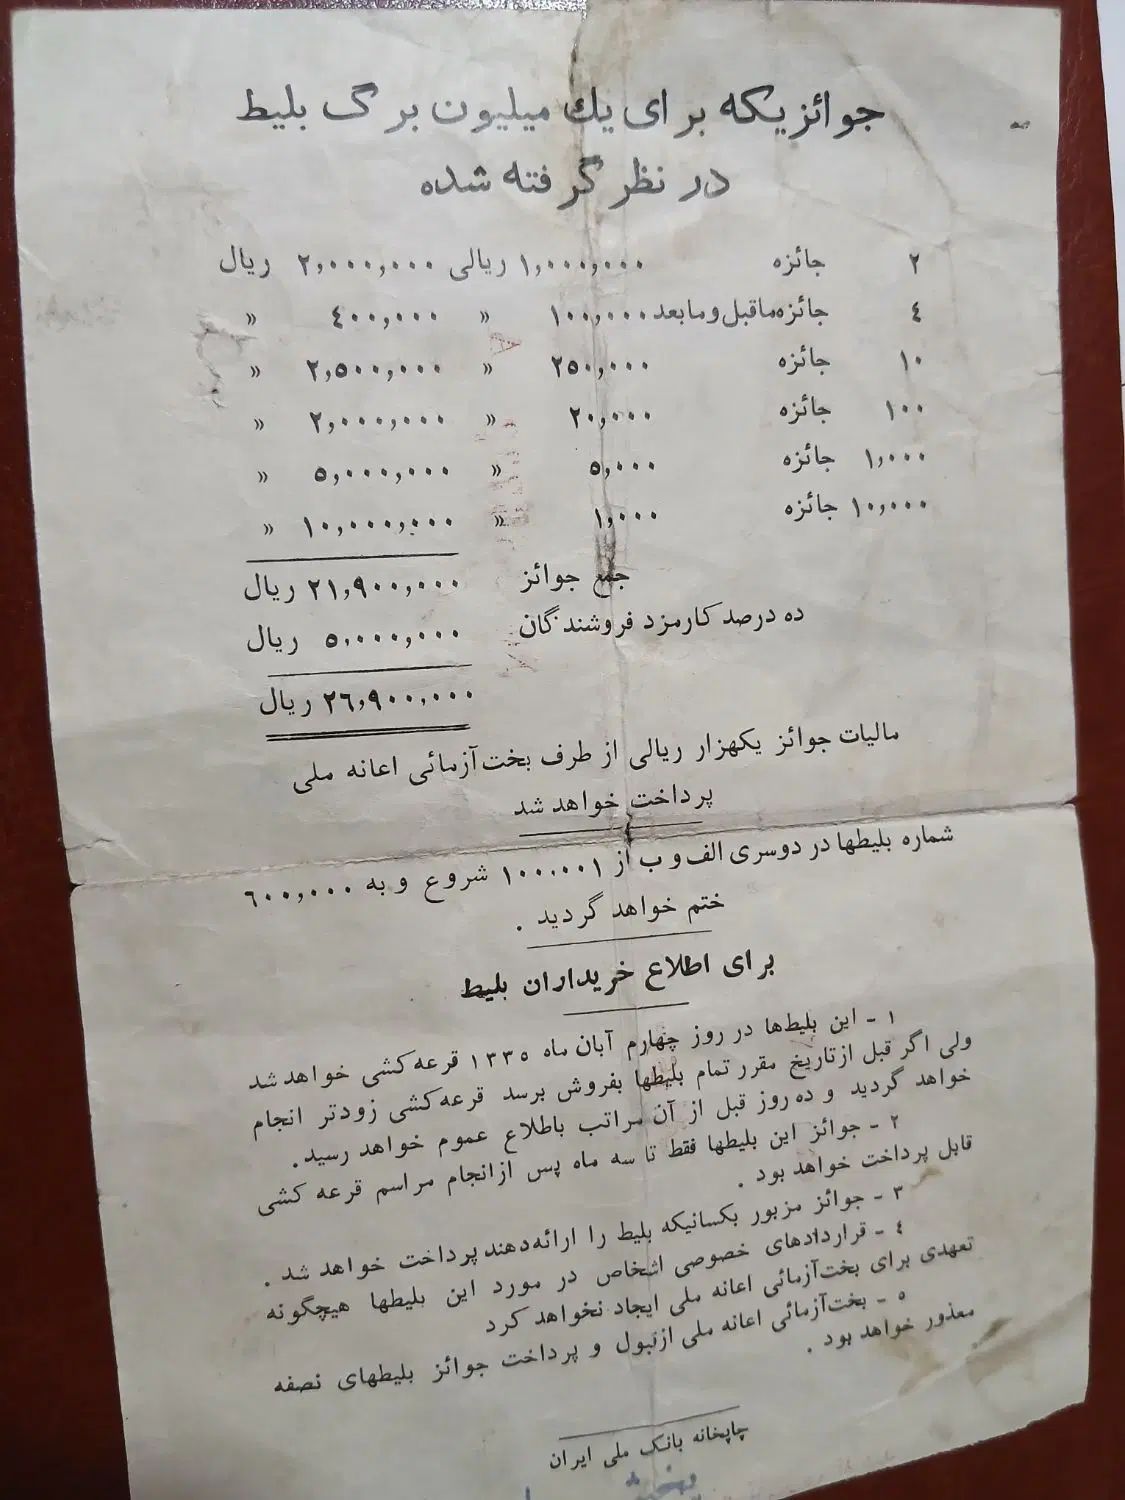 جوائزیکه برای یك میلیون برگ بلیط
در نظر گرفته شده
۲ جائزه ۱,۰۰۰,۰۰۰ ریالی ۲,۰۰۰,۰۰۰ ریال
٤ جائزه ماقبل و مابعد ۱۰۰,۰۰۰ » ٤۰۰,۰۰۰ »
۱۰ جائزه ۲۵۰,۰۰۰ » ۲,۵۰۰,۰۰۰ »
۱۰۰ جائزه ۲۰,۰۰۰ » ۲,۰۰۰,۰۰۰ »
۱,۰۰۰ جائزه ۵,۰۰۰ » ۵,۰۰۰,۰۰۰ »
۱۰,۰۰۰ جائزه ۱,۰۰۰ » ۱۰,۰۰۰,۰۰۰ »
جمع جوائز ۲۱,۹۰۰,۰۰۰ ریال
ده درصد کارمزد فروشندگان ۵,۰۰۰,۰۰۰ ریال
۲٦,۹۰۰,۰۰۰ ریال
مالیات جوائز یکهزار ریالی از طرف بخت‌آزمائی اعانه ملی
پرداخت خواهد شد
شماره بلیطها در دوسری الف و ب از ۱۰۰.۰۰۱ شروع و به ٦۰۰,۰۰۰
ختم خواهد گردید .
برای اطلاع خریداران بلیط
۱ - این بلیط‌ها در روز چهارم آبان ماه ۱۳۳۵ قرعه‌کشی خواهد شد
ولی اگر قبل از تاریخ مقرر تمام بلیطها بفروش برسد قرعه‌کشی زودتر انجام
خواهد گردید و ده روز قبل از آن مراتب باطلاع عموم خواهد رسید.
۲ - جوائز این بلیطها فقط تا سه ماه پس از انجام مراسم قرعه کشی
قابل پرداخت خواهد بود .
۳ - جوائز مزبور بکسانیکه بلیط را ارائه‌دهند پرداخت خواهد شد .
٤ - قراردادهای خصوصی اشخاص در مورد این بلیطها هیچگونه
تعهدی برای بخت‌آزمائی اعانه ملی ایجاد نخواهد کرد
۵ - بخت‌آزمائی اعانه ملی از قبول و پرداخت جوائز بلیطهای نصفه
معذور خواهد بود .
چاپخانه بانک ملی ایران